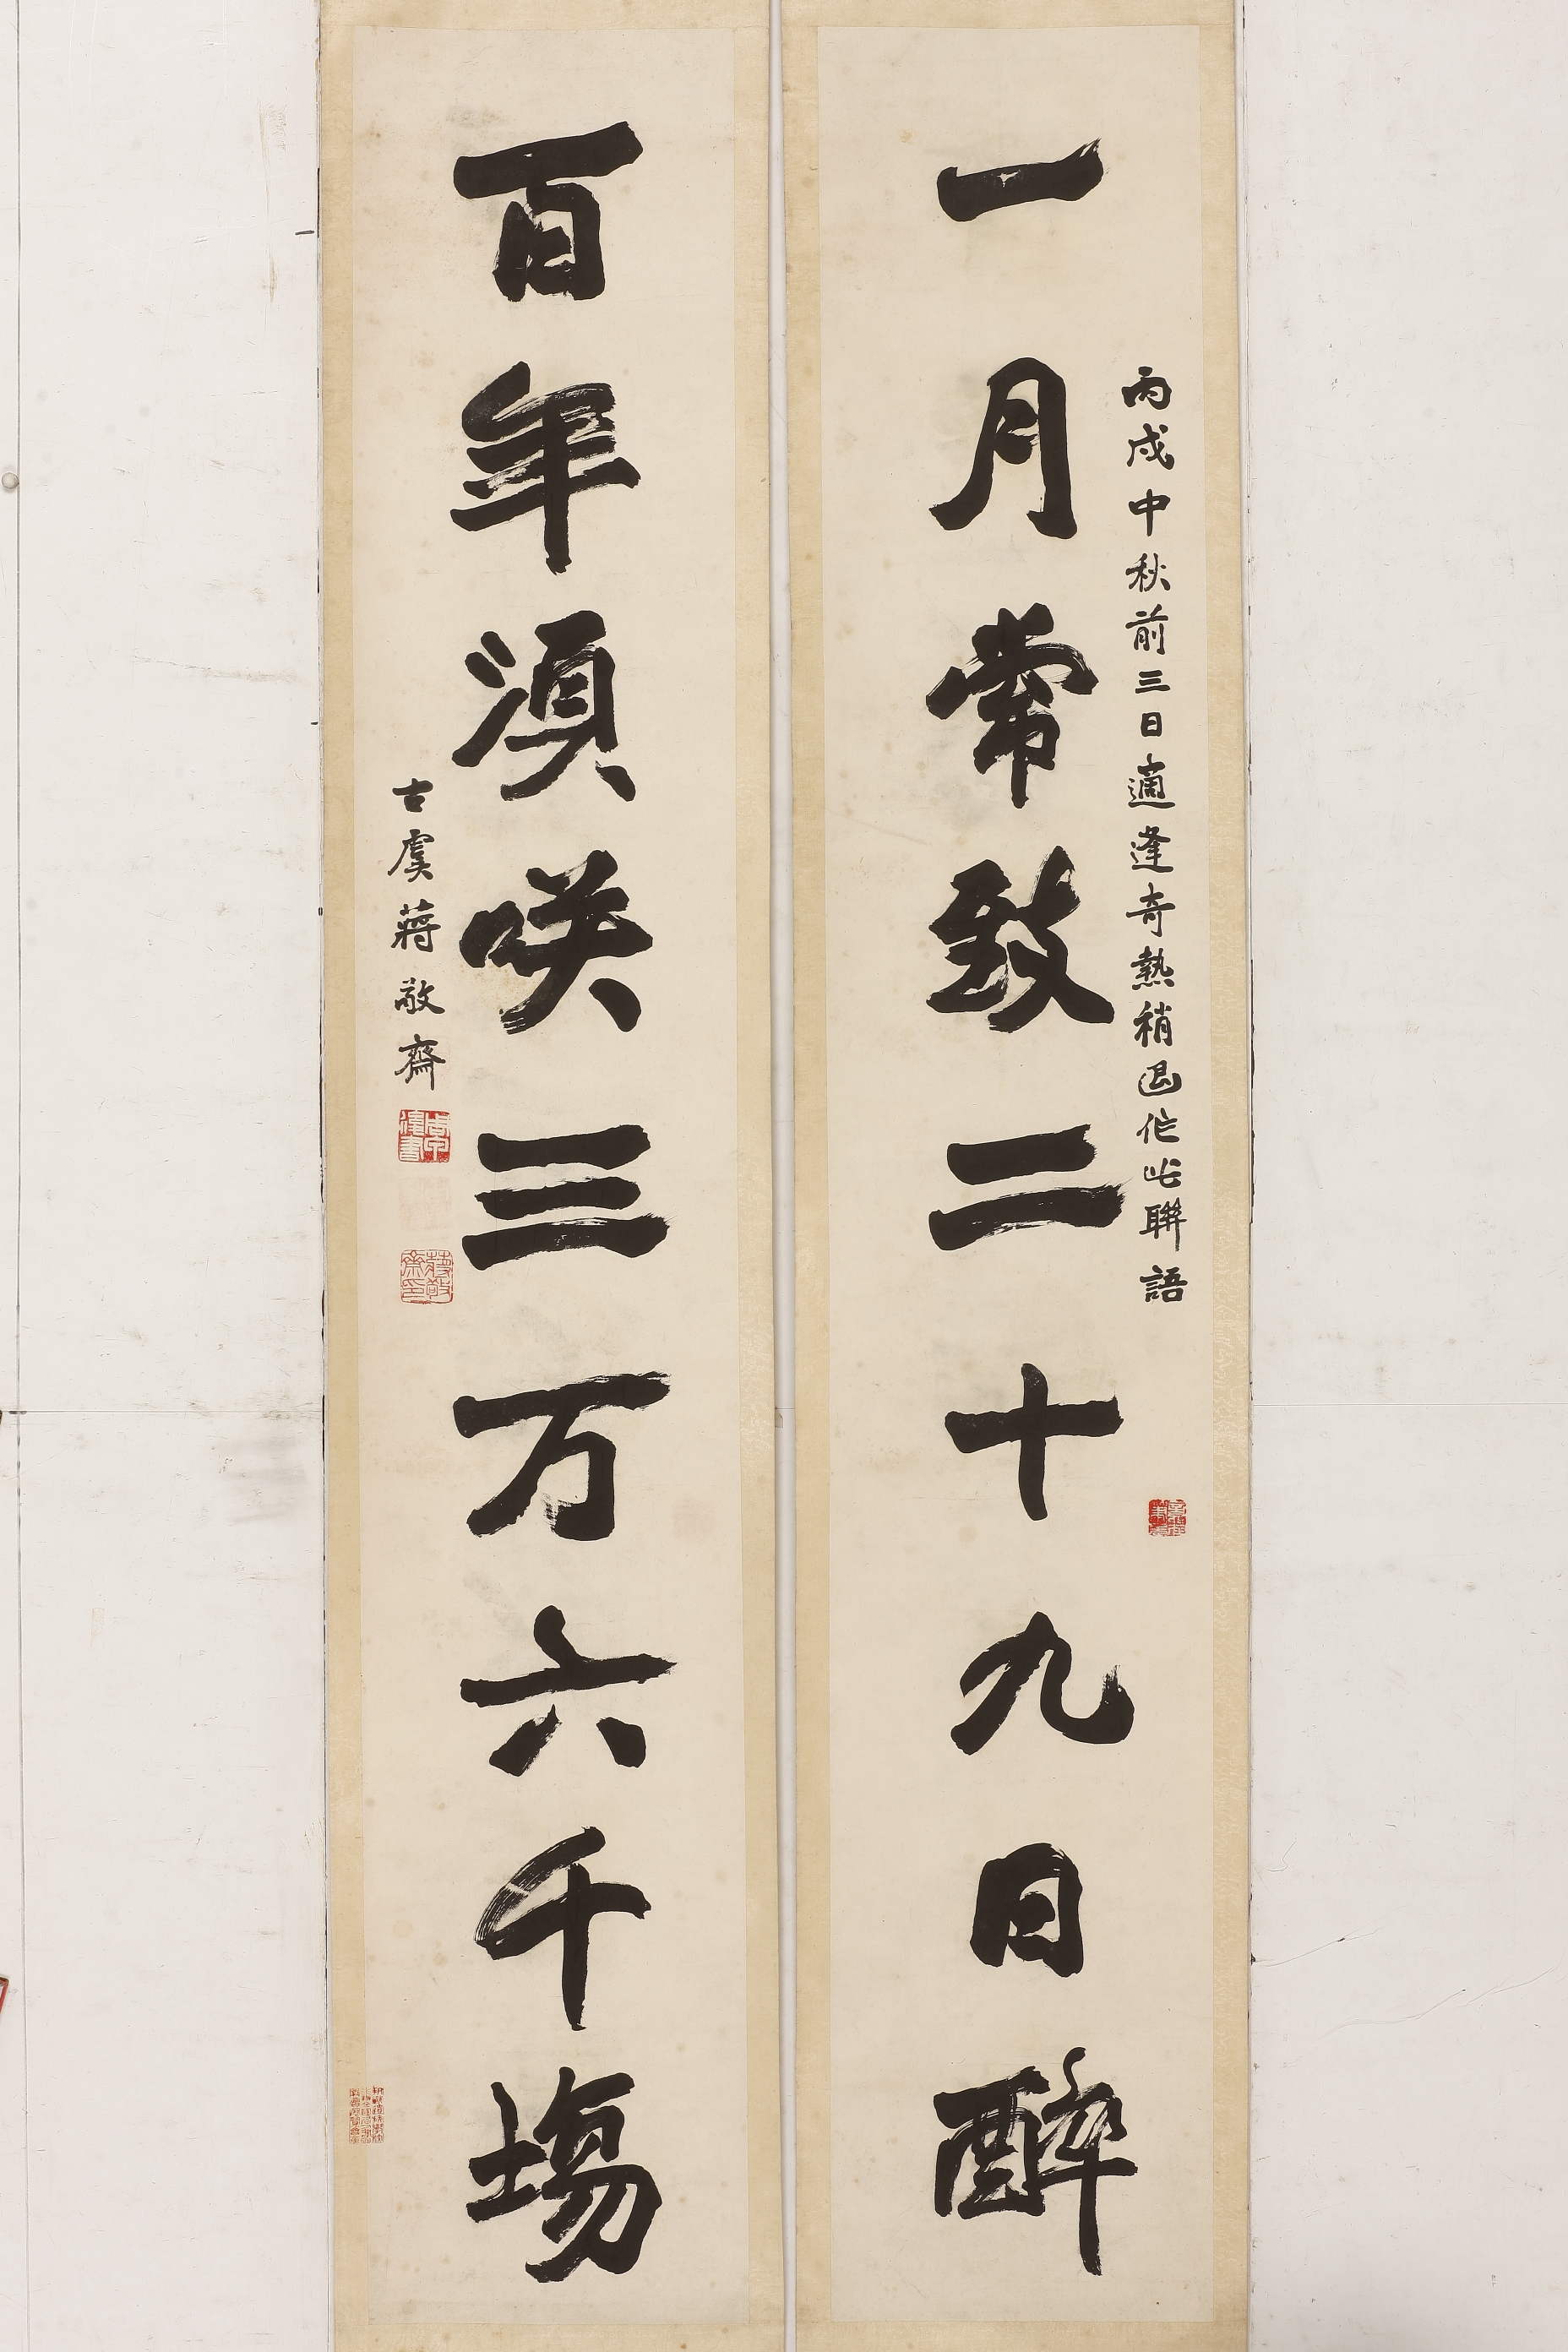 丙戌中秋前三日適逢奇熱稍退作此聯語
一月常致二十九日醉
百年須咲三万六千場
古虞蔣敬齋
蔣敬齋印